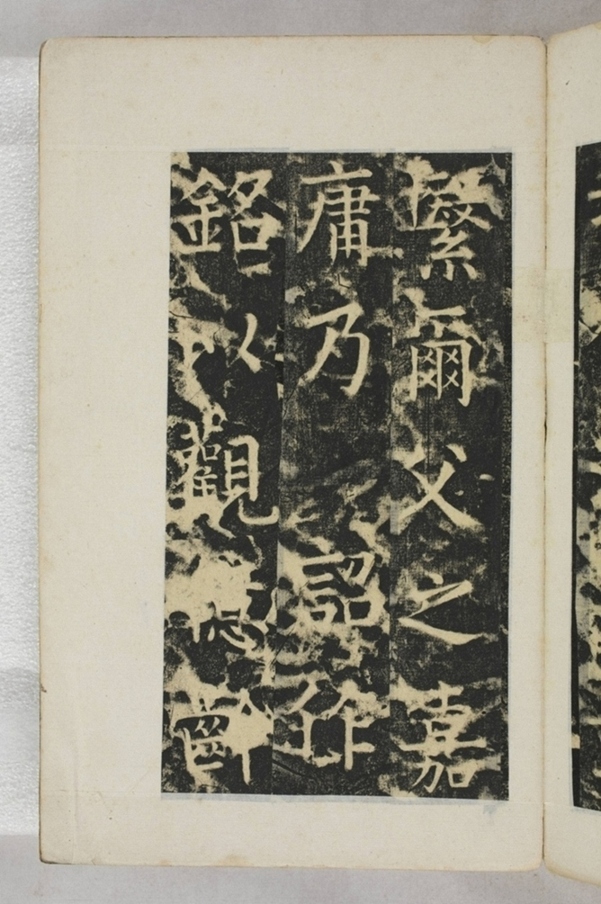 繄爾父之嘉
庸乃詔作
銘以觀德